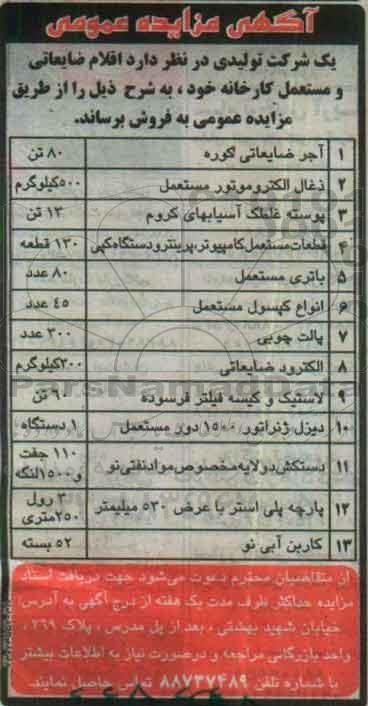 آگهی مزایده عمومی
یک شرکت تولیدی در نظر دارد اقلام ضایعاتی
و مستعمل کارخانه خود ، به شرح ذیل را از طریق
مزایده عمومی به فروش برساند.
۱ آجر ضایعاتی کوره ۸۰ تن
۲ ذغال الکتروموتور مستعمل ۵۰۰کیلوگرم
۳ پوسته غلطک آسیابهای کروم ۱۳ تن
۴ قطعات مستعمل کامپیوتر،پرینتر و دستگاه کپی ۱۳۰ قطعه
۵ باتری مستعمل ۸۰ عدد
۶ انواع کپسول مستعمل ٤٥ عدد
۷ پالت چوبی ۳۰۰ عدد
۸ الکترود ضایعاتی ۳۰۰کیلوگرم
۹ لاستیک و کیسه فیلتر فرسوده ۹۰ تن
۱۰ دیزل ژنراتور ۱۵۰۰ دور مستعمل ۱ دستگاه
۱۱ دستکش دولایه مخصوص مواد نفتی نو ۱۱۰ جفت
و۱۵۰۰لنگه
۱۲ پارچه پلی استر با عرض ۵۳۰ میلیمتر ۳ رول
۲۵۰متری
۱۳ کاربن آبی نو ۵۲ بسته
ParsNamadData
از متقاضیان محترم دعوت می‌شود جهت دریافت اسناد
مزایده حداکثر ظرف مدت یک هفته از درج آگهی به آدرس:
خیابان شهید بهشتی ، بعد از پل مدرس ، پلاک ۲۶۹ ،
واحد بازرگانی مراجعه و درصورت نیاز به اطلاعات بیشتر
با شماره تلفن ۸۸۷۳۷۴۸۹ تماس حاصل نمایند.